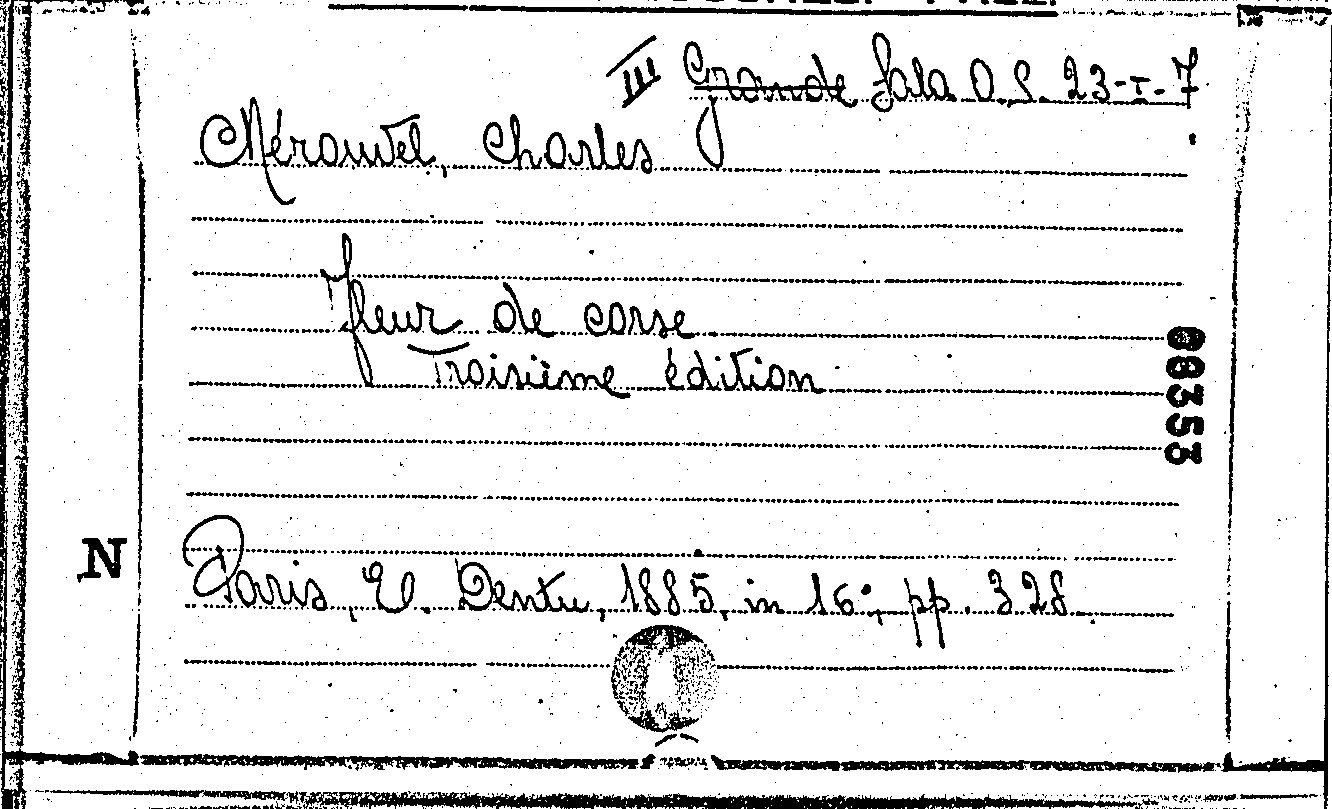 III Grande Sala O.S. 23-I-7
Mérouvel, Charles
Fleur de corse
Troisième édition
00353
N
Paris, E. Dentu, 1885, in 16°, pp. 328.